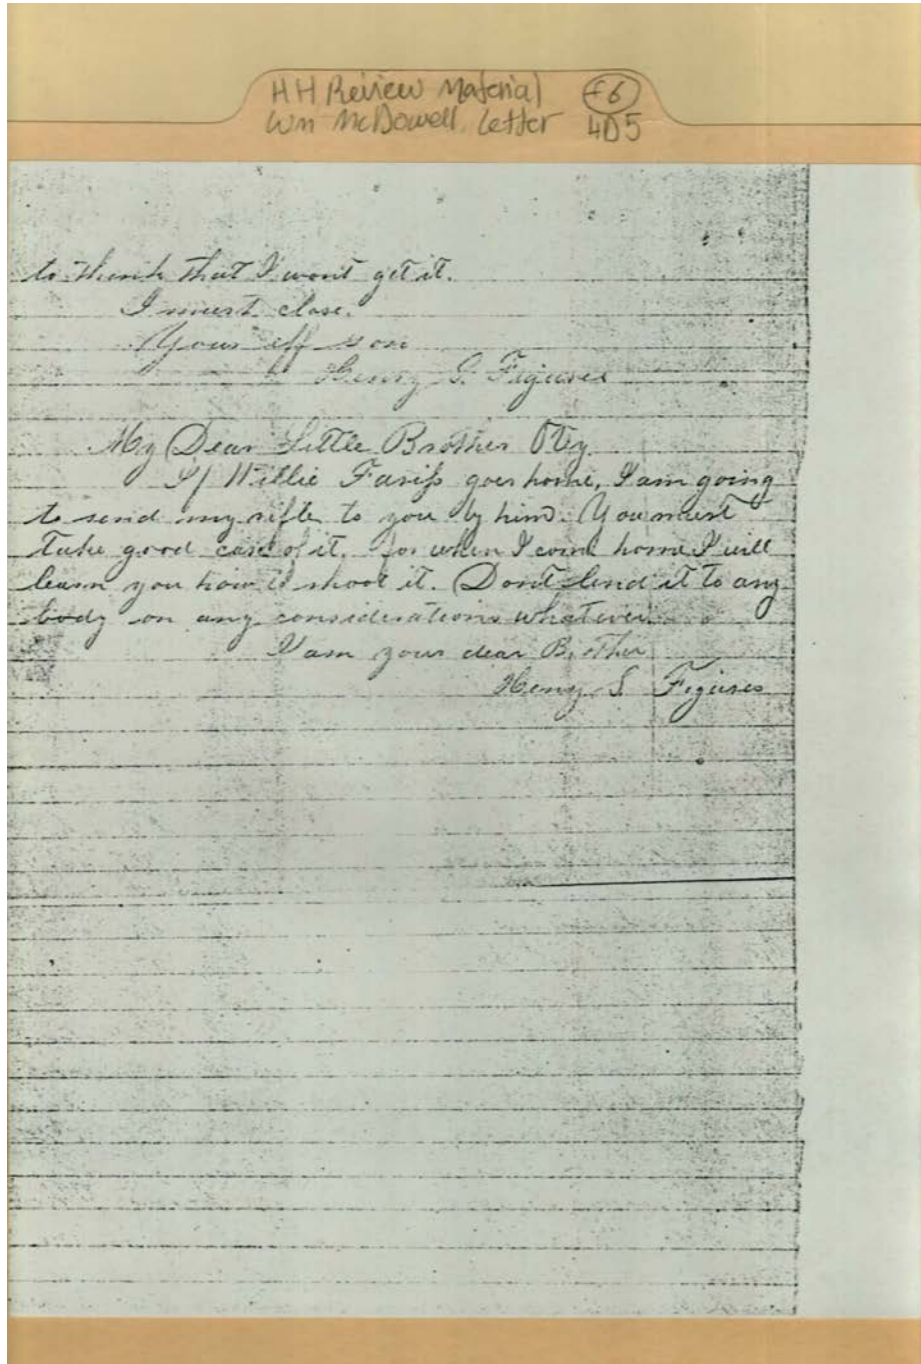 HH Review Material f6
Wm McDowell Letter 4D5
to think that I wont get it.
I must close.
Your aff son
Henry S. Figures
My Dear Little Brother Otey
If Willie Fariss goes home, I am going
to send my rifle to you by him. You must
take good care of it. for when I come home I will
learn you how to shoot it. Dont lend it to any
body on any considerations whatever.
I am your dear Brother
Henry S. Figures